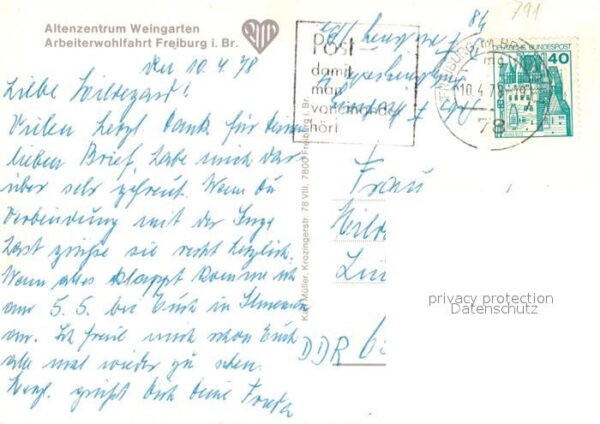 Altenzentrum Weingarten
Arbeiterwohlfahrt Freiburg i. Br.
den 10.4.78
Liebe Hildegard!
Vielen herzl Dank für deinen
lieben Brief, habe mich dar
über sehr gefreut. Wenn du
Verbindung mit der Inge
hast grüße sie recht herzlich.
Wenn alles klappt komme ich
am 5.5. bei Euch in Ilmenau
an. Ich freue mich schon Euch
alle mal wieder zu sehen.
Herzl. grüßt dich deine Frieda
Karl Müller, Krozingerstr. 78 VIII, 7800 Freiburg i. Br.
Post
damit
man
voneinander
hört
84
791
10.4.78
78
DEUTSCHE BUNDESPOST
40
Frau
Hilde
DDR 6
privacy protection
Datenschutz